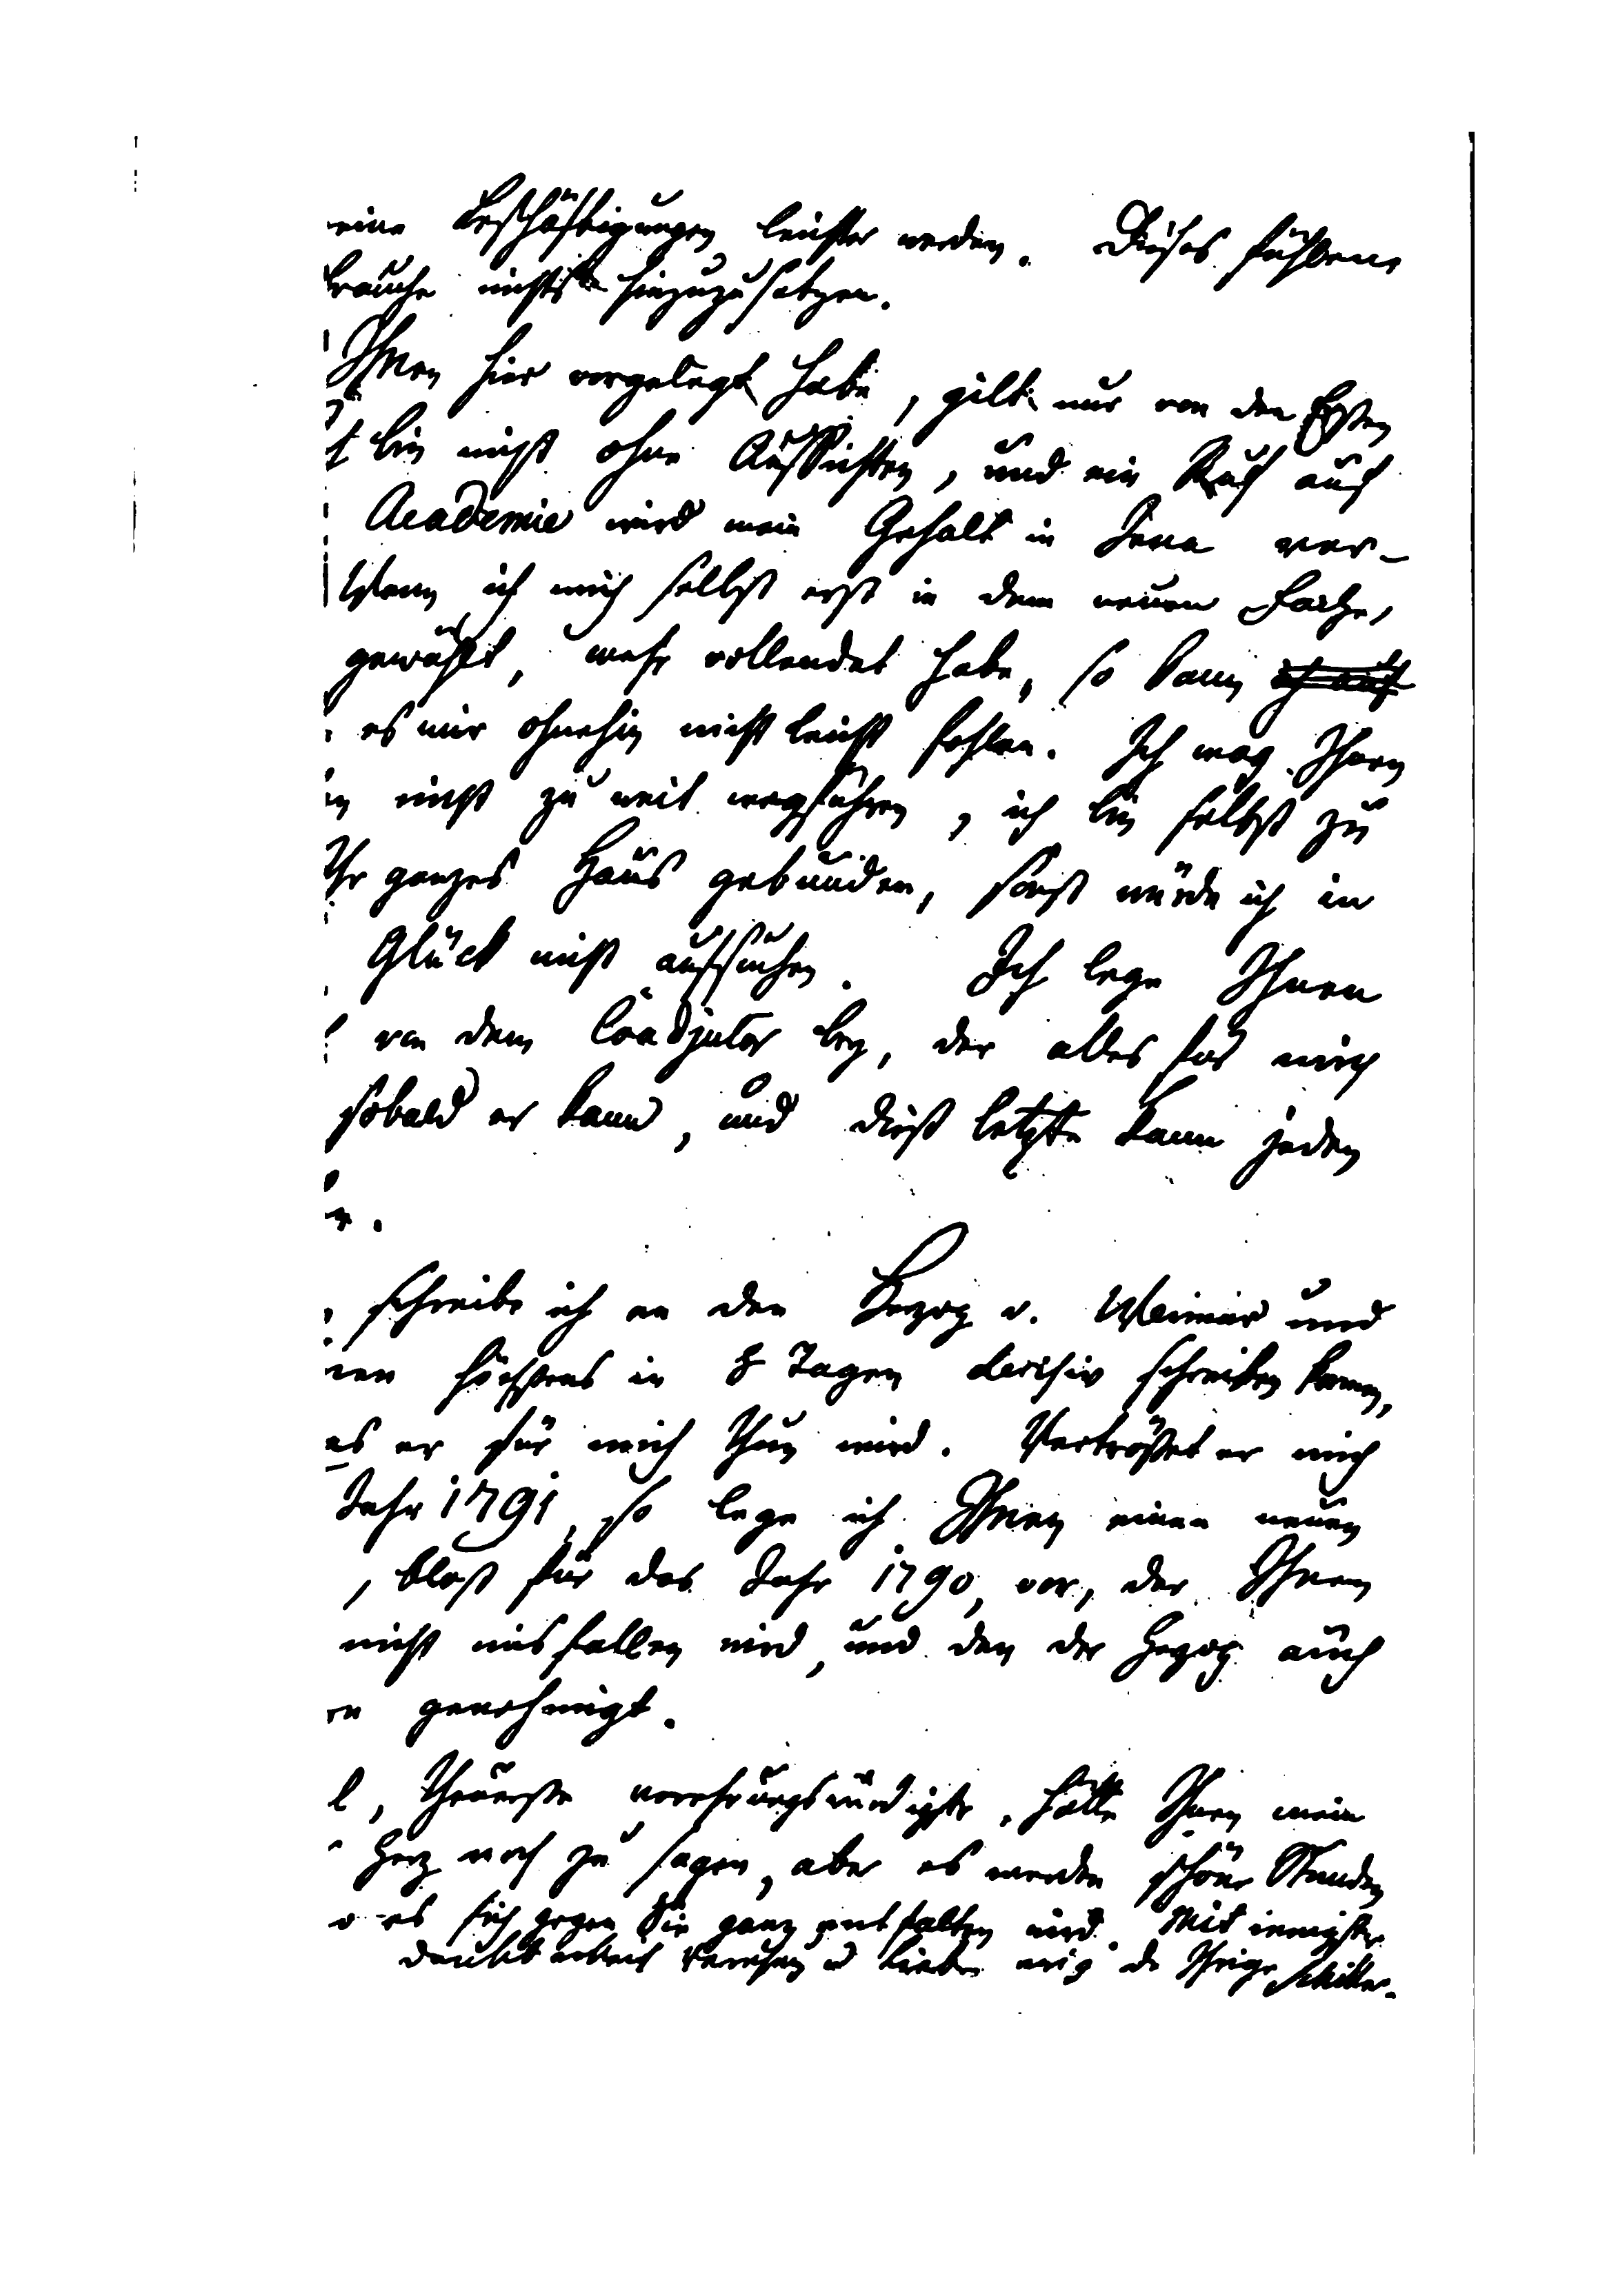 eine Beschäftigungen leichter werden. Dieses fühlend
brauche nichts hinzuzusetzen.
Ihnen hier vorgelegt habe, gilt nur von den Ersten
bin nicht ohne Aussichten, und ein Ruf auf
Academie wird mein Gehalt in Jena ver-
Wenn ich mich selbst erst in dem neuen Fache,
gewählt, mehr vollendet habe, so kann ich auf
es mir ohnehin nicht leicht fehlen. Ich mag Ihnen
nicht zu weit wegführen, ich bin selbst zu
Ihr ganzes Haus gebunden, sonst würde ich in
Glück nicht aufsuchen. Ich lege Ihnen
von dem Coadjutor bey, der alles für mich
sobald er kann, und dieß letzte kann jeden
schreibe ich an den Herzog v. Weimar und
nen höchstens in 8 Tagen decisiv schreiben können,
as er für mich thun wird. Vertröstet er mich
Jahr 1791, so lege ich Ihnen einen neuen
, bloß für das Jahr 1790, vor, der Ihnen
nicht misfallen wird, und den der Herzog auch
en genehmigt.
l, theuerste verehrungswürdigste, hätte Ihnen mein
Herz noch zu sagen, aber es werden schöne Stunden
o es sich gegen Sie ganz entfalten wird. Mit innigster
Dankbarkeit Verehrung u Liebe ewig der Ihrige Schiller.